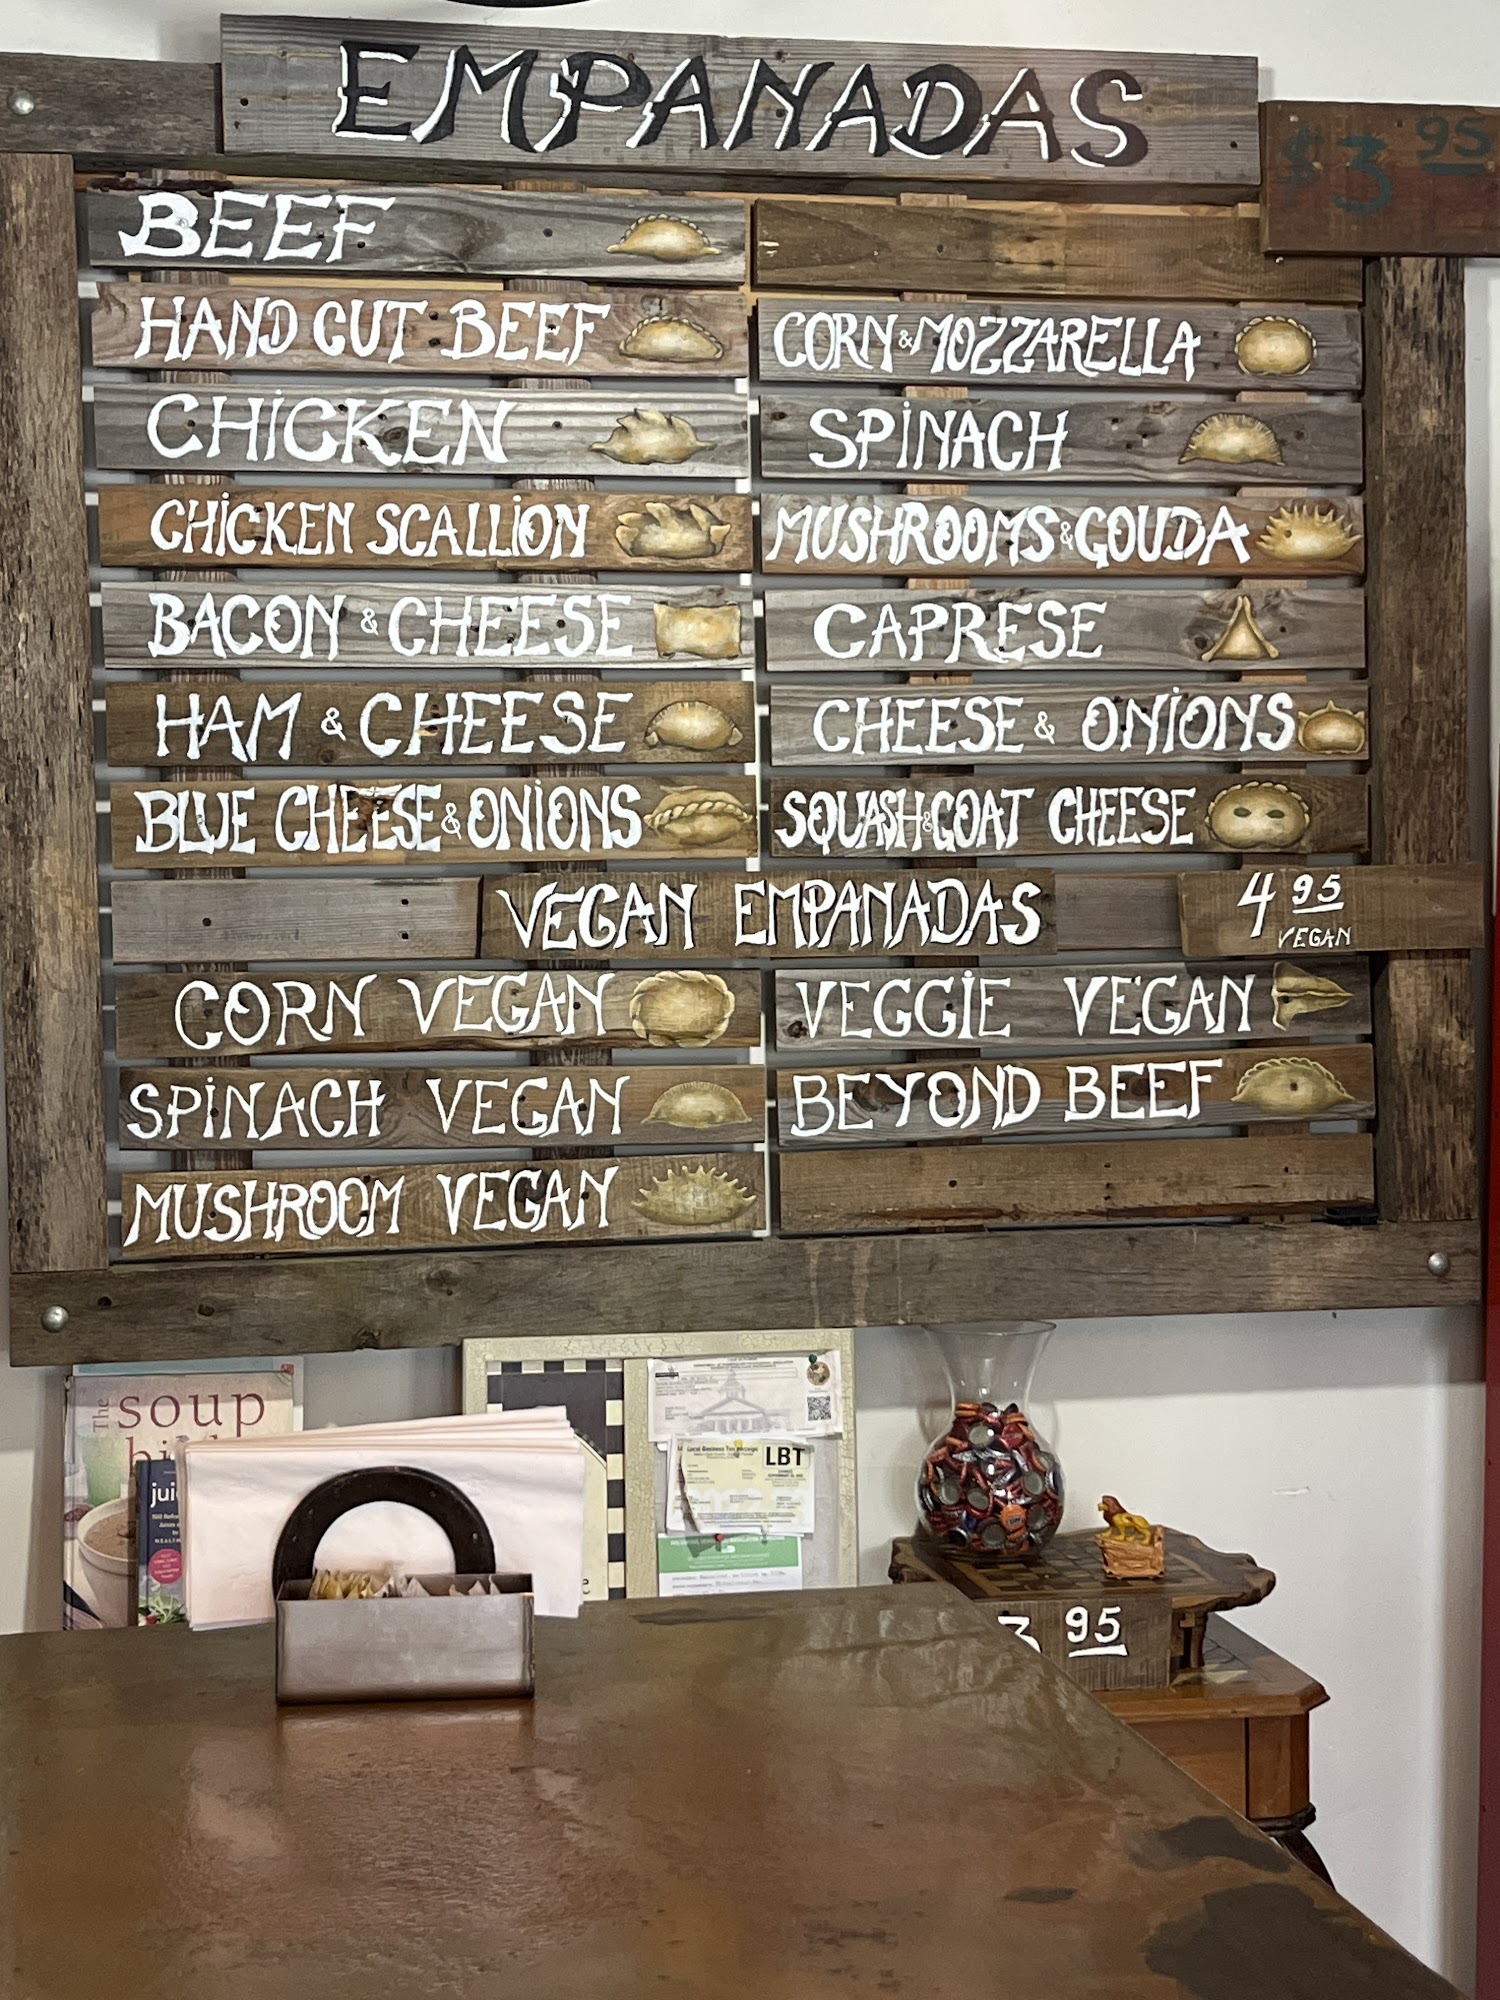 EMPANADAS
$3 95
BEEF
HAND CUT BEEF
CHICKEN
CHICKEN SCALLION
BACON & CHEESE
HAM & CHEESE
BLUE CHEESE & ONIONS
CORN & MOZZARELLA
SPINACH
MUSHROOMS & GOUDA
CAPRESE
CHEESE & ONIONS
SQUASH & GOAT CHEESE
VEGAN EMPANADAS
4 95
VEGAN
CORN VEGAN
SPINACH VEGAN
MUSHROOM VEGAN
VEGGIE VEGAN
BEYOND BEEF
The soup
LBT
3 95